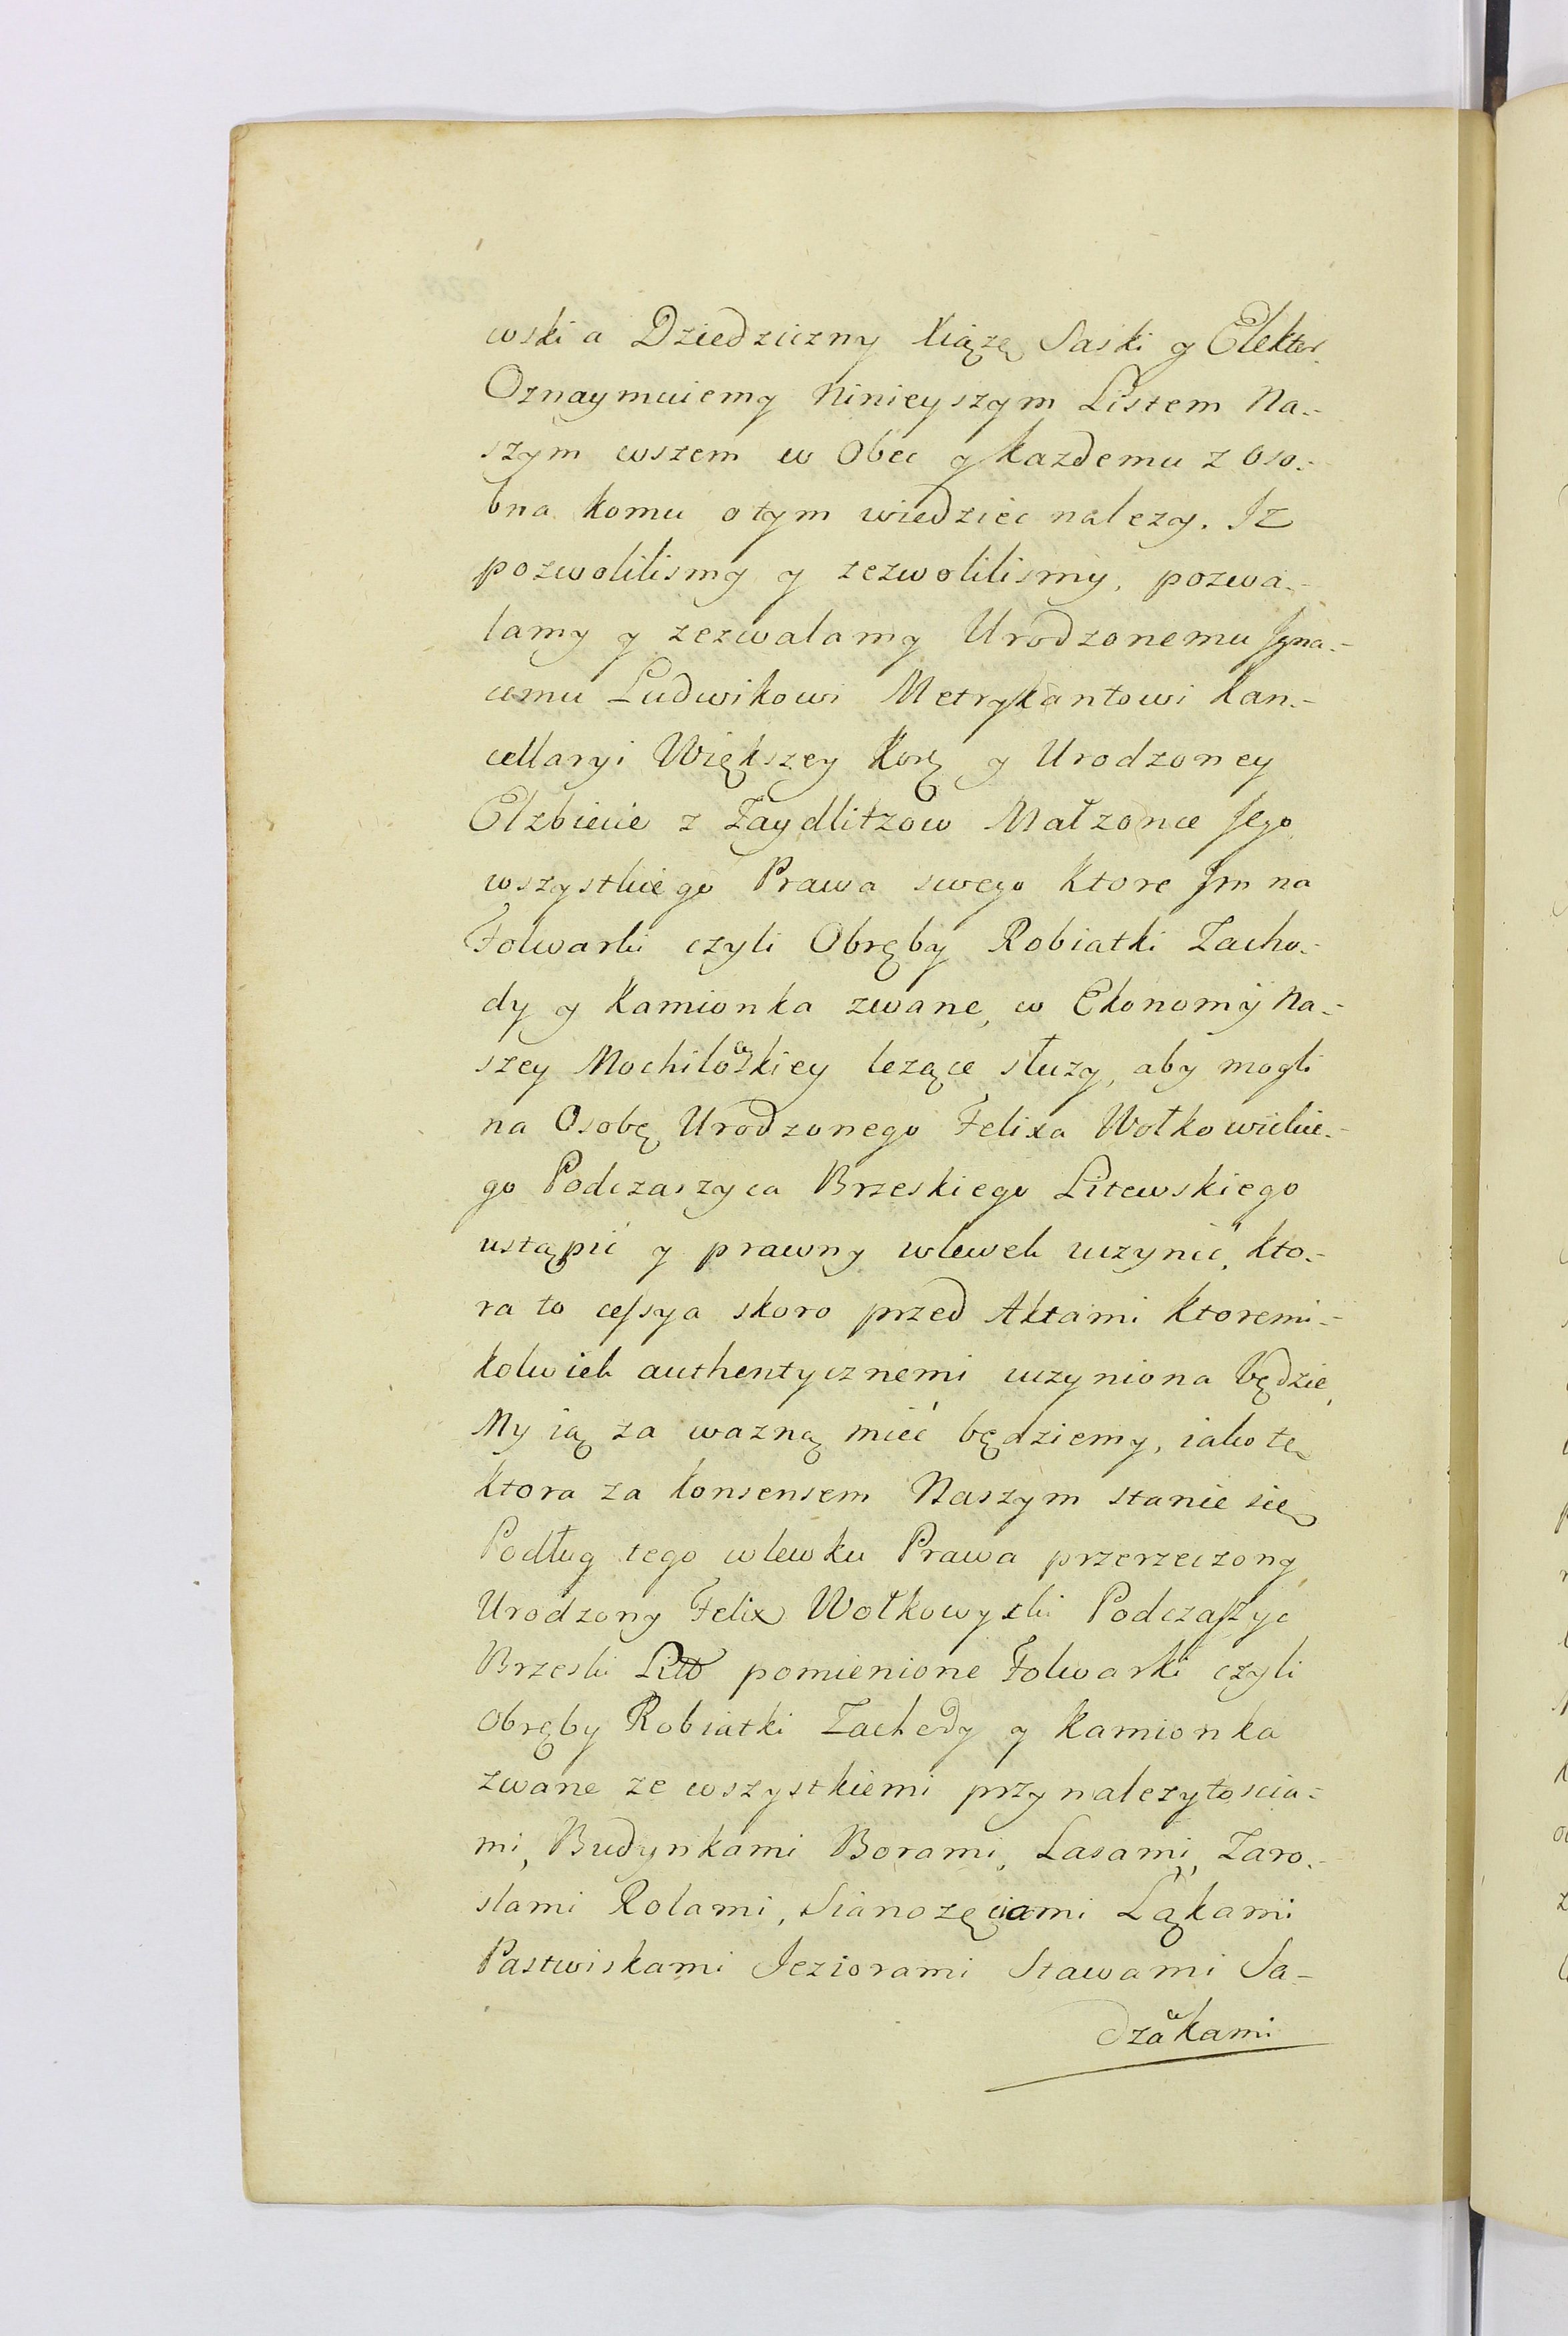 wski a Dziedziczny Xiążę Saski y Elektor.
Oznaymuiemy Ninieyszym Listem Na-
szym wszem w Obec y każdemu z oso-
bna komu o tym wiedziec nalezy. Iz
pozwolilismy y zezwolilismy, pozwa-
lamy y zezwalamy Urodzonemu Igna-
cemu Ludwikowi Metrykantowi Kan-
cellaryi Większey Korę y Urodzoney
Elzbiecie z Zaydlitzow Małzonce Jego
wszystkiego Prawa swego Ktore Im na
Folwarki czyli Obręby Robiatki Zacho-
dy y Kamionka zwane, w Ekonomij Na-
szey Mochilowskiey lezące słuzy, aby mogli
na Osobę Urodzonego Felixa Wołkowickie-
go Podczaszyca Brzeskiego Litewskiego
ustąpić y prawny wlewek uczynić, kto-
ra to cessya skoro przed Aktami Ktoremi-
kolwiek authentycznemi uczyniona będzie,
My ią za wazną mieć będziemy, iako tę
ktora za konsensem Naszym stanie się
Podług tego wlewku Prawa przerzeczony
Urodzony Felix Wołkowycki Podczaszyc
Brzeski Litt pomienione Folwarki czyli
Obręby Robiatki Zachody y Kamionka
zwane ze wszystkiemi przynalezytoscia-
mi, Budynkami Borami, Lasami, Zaro-
slami Rolami, Sianozęciami Ląkami
Pastwiskami Jeziorami Stawami Sa-
dzawkami